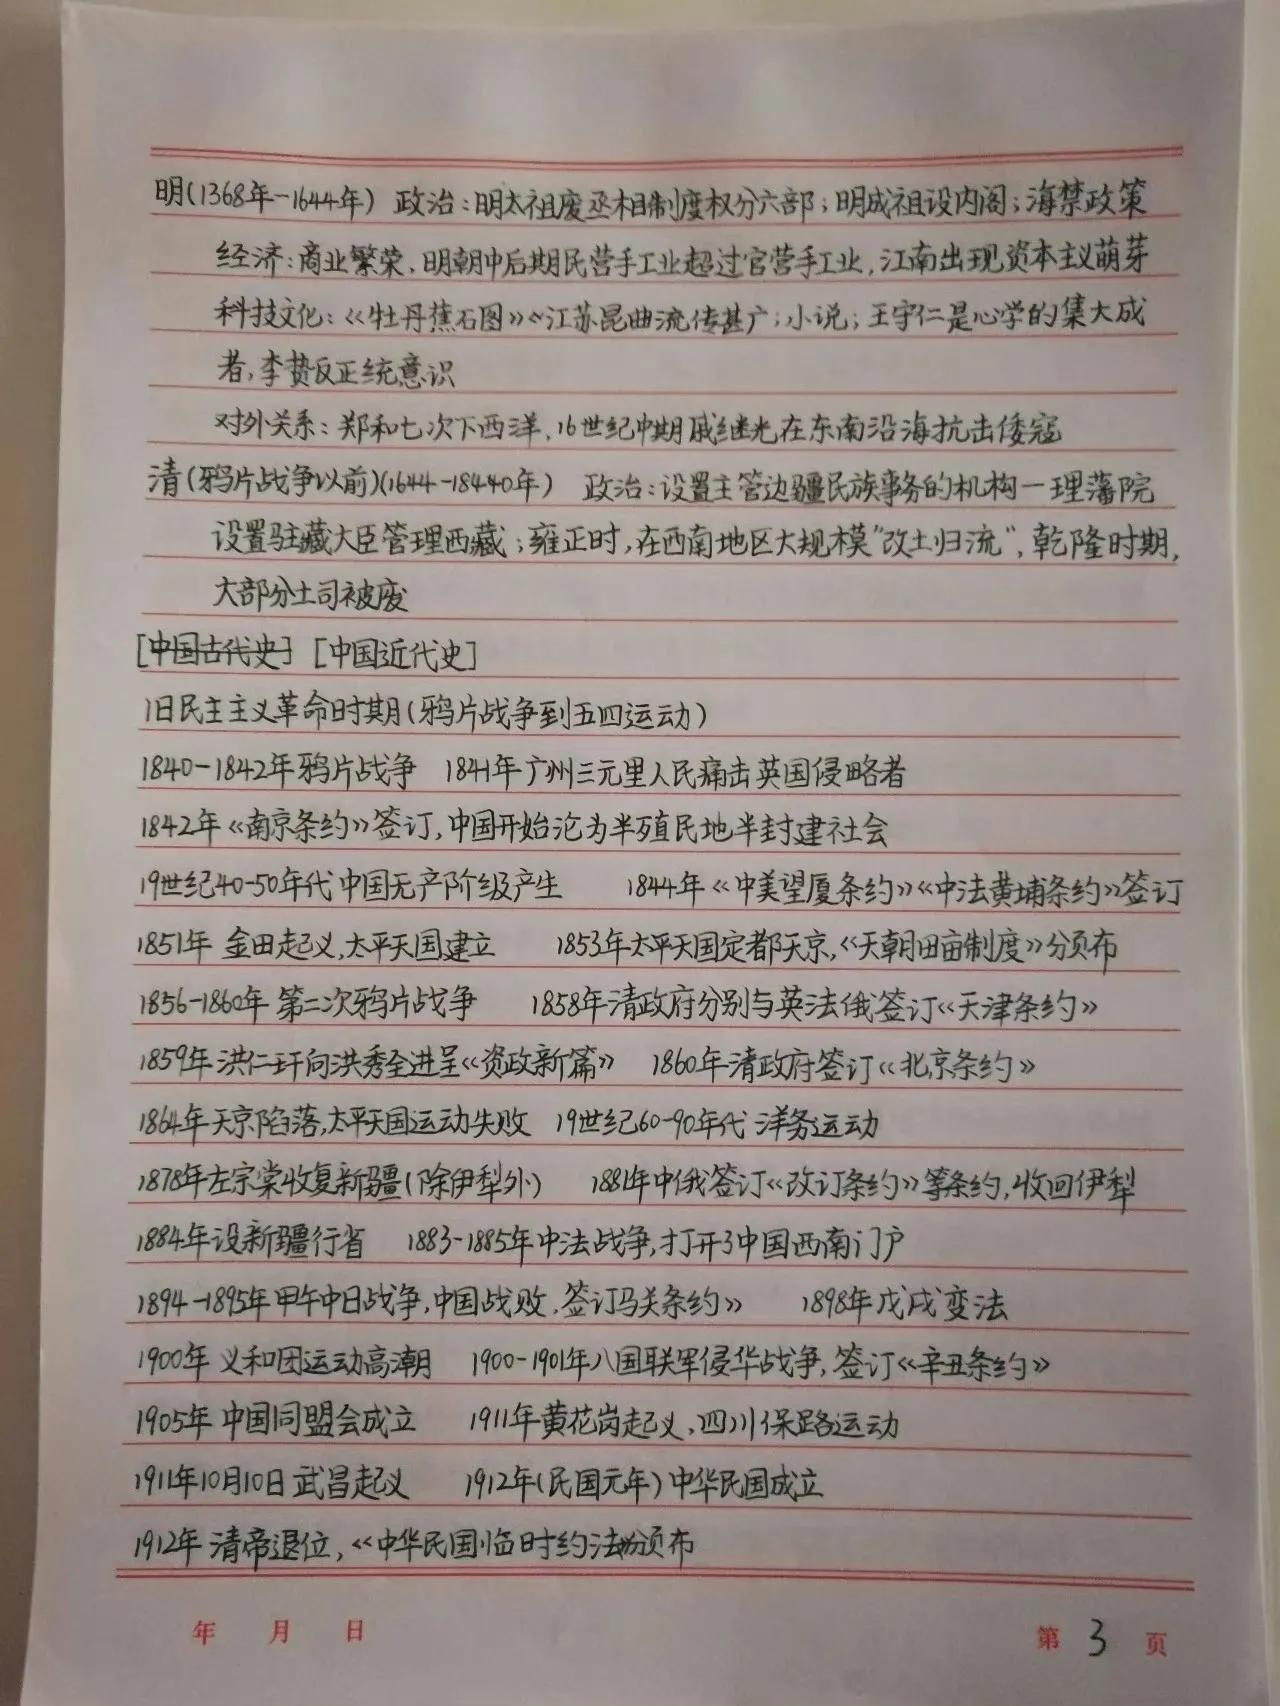 明(1368年-1644年) 政治：明太祖废丞相制度权分六部；明成祖设内阁；海禁政策
经济：商业繁荣，明朝中后期民营手工业超过官营手工业，江南出现资本主义萌芽
科技文化：《牡丹蕉石图》江苏昆曲流传甚广；小说；王守仁是心学的集大成
者，李贽反正统意识
对外关系：郑和七次下西洋，16世纪中期戚继光在东南沿海抗击倭寇
清(鸦片战争以前)(1644-18440年) 政治：设置主管边疆民族事务的机构—理藩院
设置驻藏大臣管理西藏；雍正时，在西南地区大规模"改土归流"，乾隆时期，
大部分土司被废
[中国古代史] [中国近代史]
1旧民主主义革命时期(鸦片战争到五四运动)
1840-1842年鸦片战争 1841年广州三元里人民痛击英国侵略者
1842年《南京条约》签订，中国开始沦为半殖民地半封建社会
19世纪40-50年代中国无产阶级产生 1844年《中美望厦条约》《中法黄埔条约》签订
1851年 金田起义，太平天国建立 1853年太平天国定都天京，《天朝田亩制度》颁布
1856-1860年 第二次鸦片战争 1858年清政府分别与英法俄签订《天津条约》
1859年 洪仁玕向洪秀全进呈《资政新篇》 1860年清政府签订《北京条约》
1864年天京陷落，太平天国运动失败 19世纪60-90年代 洋务运动
1878年左宗棠收复新疆(除伊犁外) 1881年中俄签订《改订条约》等条约，收回伊犁
1884年设新疆行省 1883-1885年中法战争，打开了中国西南门户
1894-1895年甲午中日战争，中国战败，签订马关条约》 1898年戊戌变法
1900年 义和团运动高潮 1900-1901年八国联军侵华战争，签订《辛丑条约》
1905年 中国同盟会成立 1911年黄花岗起义，四川保路运动
1911年10月10日 武昌起义 1912年(民国元年)中华民国成立
1912年 清帝退位，《中华民国临时约法颁布
年 月 日 第 3 页